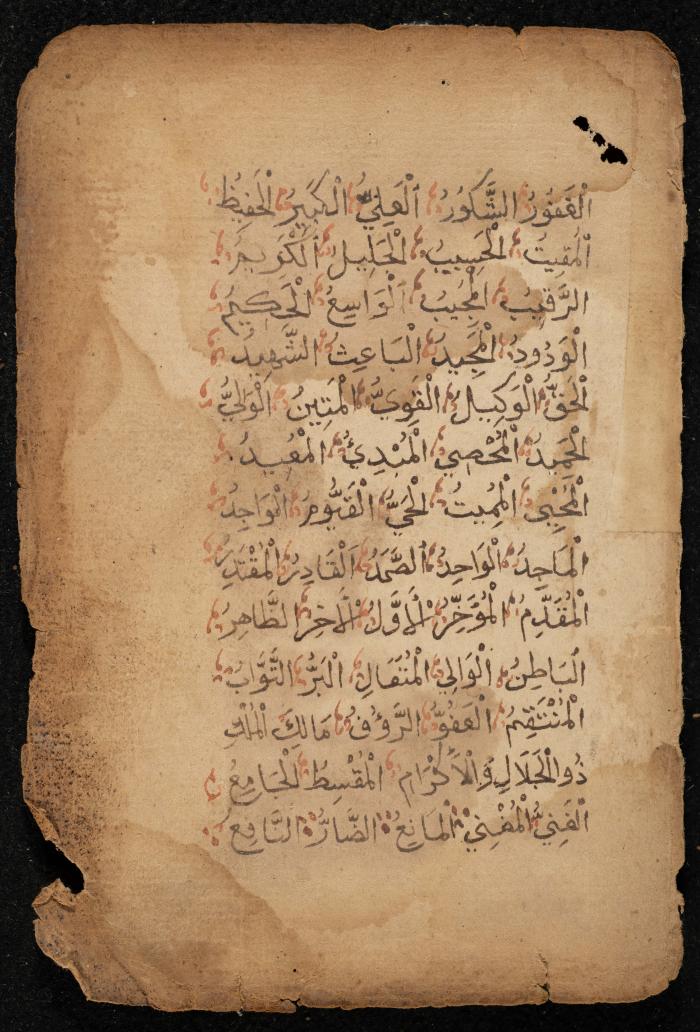 اَلْغَفُورُ الشَّكُورُ اَلْعَلِيُّ الْكَبِيرُ الْحَفِيظُ
اَلْمُقِيتُ الْحَسِيبُ الْجَلِيلُ اَلْكَرِيمُ
الرَّقِيبُ الْمُجِيبُ اَلْوَاسِعُ الْحَكِيمُ
الْوَدُودُ الْمَجِيدُ الْبَاعِثُ الشَّهِيدُ
الْحَقُّ الْوَكِيلُ الْقَوِيُّ الْمَتِينُ الْوَلِيُّ
الْحَمِيدُ الْمُحْصِي الْمُبْدِئُ الْمُعِيدُ
الْمُحْيِي الْمُمِيتُ الْحَيُّ الْقَيُّومُ الْوَاجِدُ
الْمَاجِدُ اَلْوَاحِدُ اَلصَّمَدُ اَلْقَادِرُ الْمُقْتَدِرُ
الْمُقَدِّمُ الْمُؤَخِّرُ الْاَوَّلُ الْاٰخِرُ الظَّاهِرُ
الْبَاطِنُ اَلْوَالِي الْمُتَعَالِ الْبَرُّ التَّوَّابُ
الْمُنْتَقِمُ الْعَفُوُّ الرَّؤُفُ مَالِكَ الْمُلْكِ
ذُوالْجَلَالِ وَالْاَكْرَامِ الْمُقْسِطُ الْجَامِعُ
الْغَنِيُّ الْمُغْنِي الْمَانِعُ الضَّارُّ النَّافِعُ